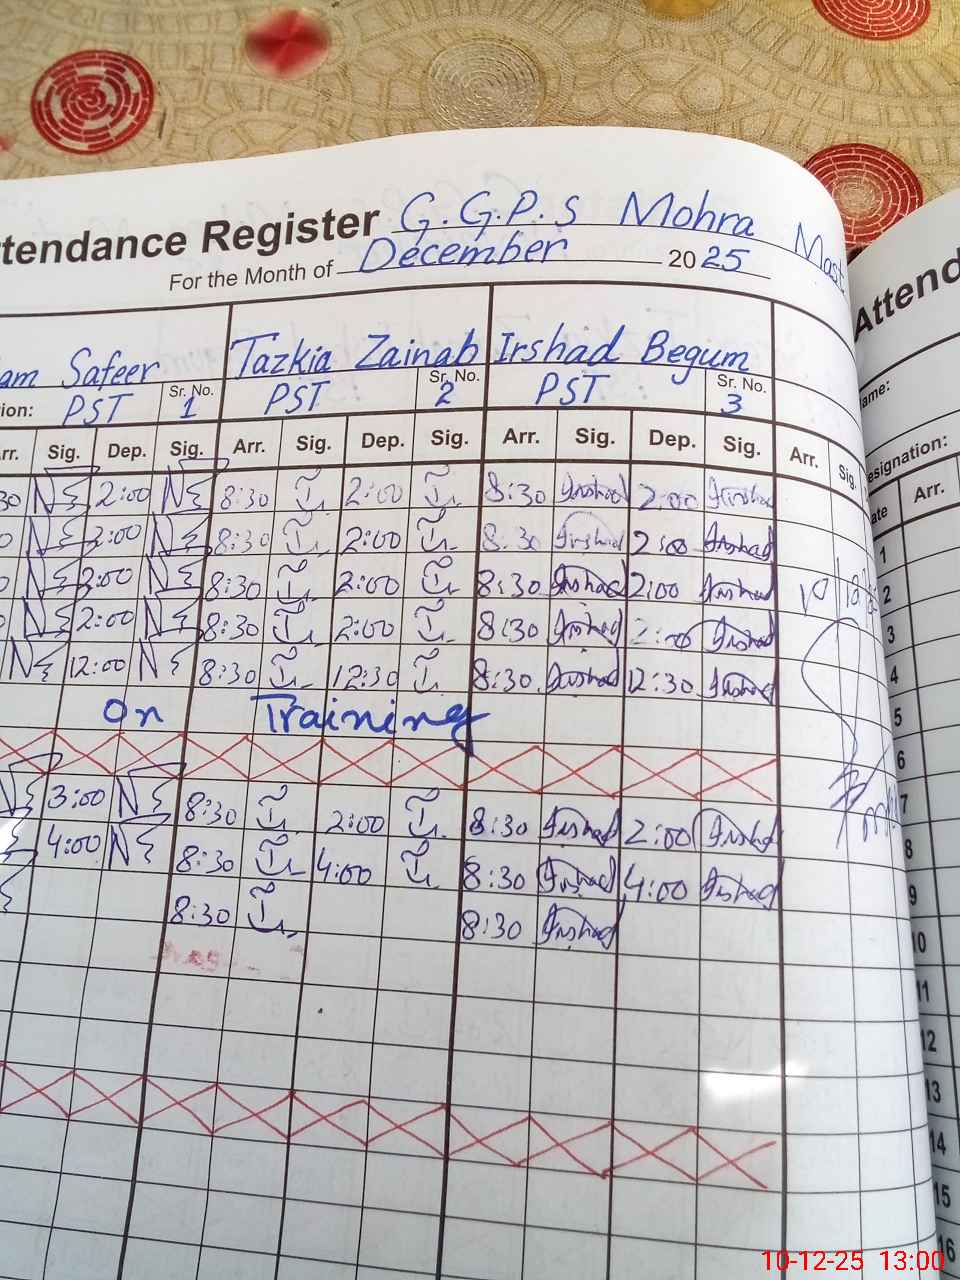 ttendance Register G.G.P.S Mohra
For the Month of December 2025
am Safeer Tazkia Zainab Irshad Begum
ion: PST Sr. No. 1 PST Sr. No. 2 PST Sr. No. 3
rr. Sig. Dep. Sig. Arr. Sig. Dep. Sig. Arr. Sig. Dep. Sig. Arr. Sig.
30 2:00 8:30 2:00 8:30 Irshad 2:00 Irshad
0 2:00 8:30 2:00 8:30 Irshad 2:00 Irshad
2:00 8:30 2:00 8:30 Irshad 2:00 Irshad
2:00 8:30 2:00 8:30 Irshad 2:00 Irshad
12:00 8:30 12:30 8:30 Irshad 12:30 Irshad
On Training
3:00 8:30 2:00 8:30 Irshad 2:00 Irshad
4:00 8:30 4:00 8:30 Irshad 4:00 Irshad
8:30 8:30 Irshad
Attend
ame:
esignation:
ate Arr.
1
2
3
4
5
6
7
8
9
10
11
12
13
14
15
16
10-12-25 13:00